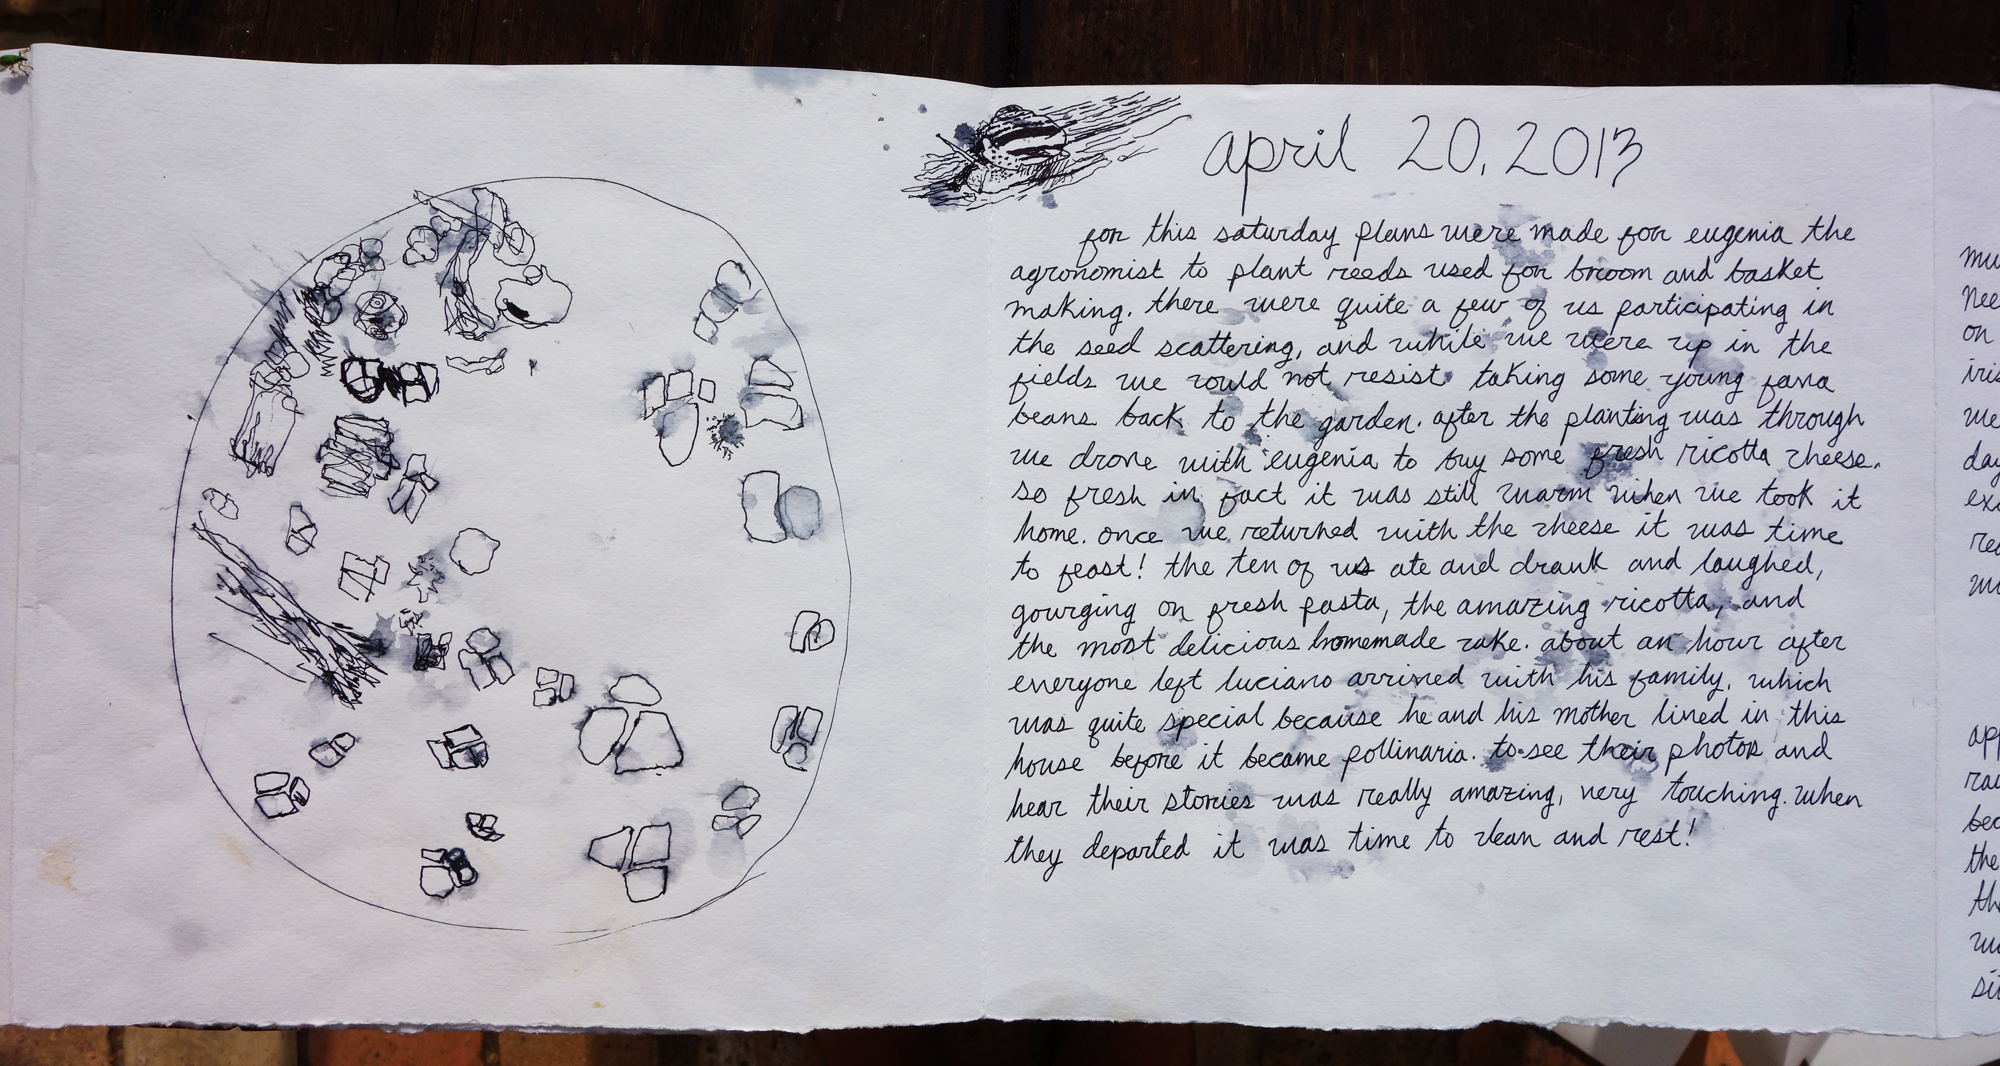 april 20, 2013
for this saturday plans were made for eugenia the
agronomist to plant reeds used for broom and basket
making. there were quite a few of us participating in
the seed scattering, and while we were up in the
fields we could not resist taking some young fava
beans back to the garden. after the planting was through
we drove with eugenia to buy some fresh ricotta cheese.
so fresh in fact it was still warm when we took it
home. once we returned with the cheese it was time
to feast! the ten of us ate and drank and laughed,
gourging on fresh pasta, the amazing ricotta, and
the most delicious homemade cake. about an hour after
everyone left luciano arrived with his family, which
was quite special because he and his mother lived in this
house before it became pollinaria. to see their photos and
hear their stories was really amazing, very touching. when
they departed it was time to clean and rest!
on
we
the